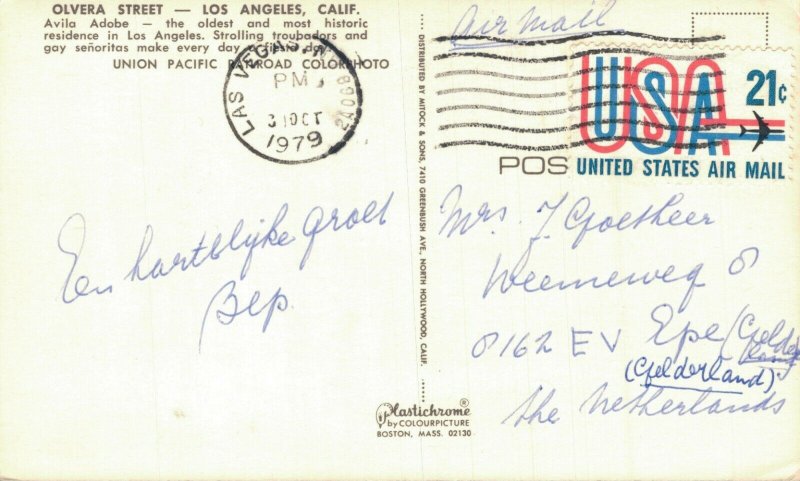 OLVERA STREET — LOS ANGELES, CALIF.
Avila Adobe — the oldest and most historic
residence in Los Angeles. Strolling troubadors and
gay señoritas make every day a fiesta day.
UNION PACIFIC RAILROAD COLORPHOTO
LAS VEGAS, NV
PM
3 OCT
1979
Air Mail
USA 21c
UNITED STATES AIR MAIL
POS
DISTRIBUTED BY MITOCK & SONS, 7410 GREENBUSH AVE., NORTH HOLLYWOOD, CALIF.
Een hartelijke groet
Bep.
Mrs. J. Goetheer
Weemeweg 8
8162 EV Epe (Gelderland)
(Gelderland)
the Netherlands
Plastichrome®
by COLOURPICTURE
BOSTON, MASS. 02130